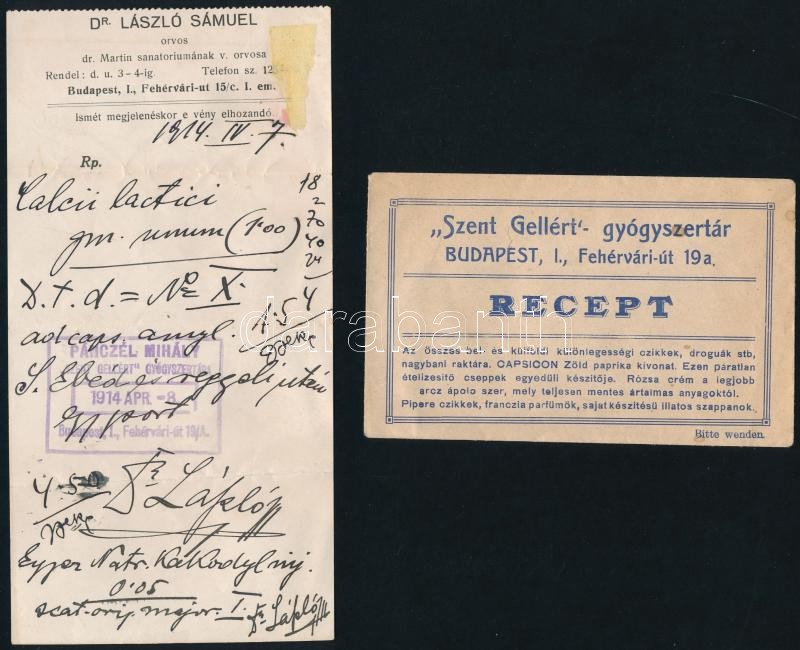 DR. LÁSZLÓ SÁMUEL
orvos
dr. Martin sanatoriumának v. orvosa
Rendel: d. u. 3-4-ig. Telefon sz.
Budapest, I., Fehérvári-ut 15/c. I. em.
Ismét megjelenéskor e vény elhozandó.
1914. IV. 7.
Rp.
18
2
70
40
24
Calcii lactici
gm. unum (1.00)
D. t. d. = No X.
ad caps. amyl.
1.54
S. Ebéd és reggeli után
egy port
PANCZÉL MIHÁLY
GELLÉRT" GYÓGYSZERTÁRA
1914 APR. -8.
Budapest, I., Fehérvári-út 19/A.
Dr László
Natr. Kakodyl inj.
0.05
scat. orig. major. I. Dr László
„Szent Gellért"- gyógyszertár
BUDAPEST, I., Fehérvári-út 19 a.
RECEPT
Az összes bel- és külföldi különlegességi czikkek, droguák stb,
nagybani raktára. CAPSICON Zöld paprika kivonat. Ezen páratlan
ételizesitő cseppek egyedüli készitője. Rózsa crém a legjobb
arcz ápolo szer, mely teljesen mentes ártalmas anyagoktól.
Pipere czikkek, franczia parfümők, sajat készitésü illatos szappanok.
Bitte wenden.
darabanth.com